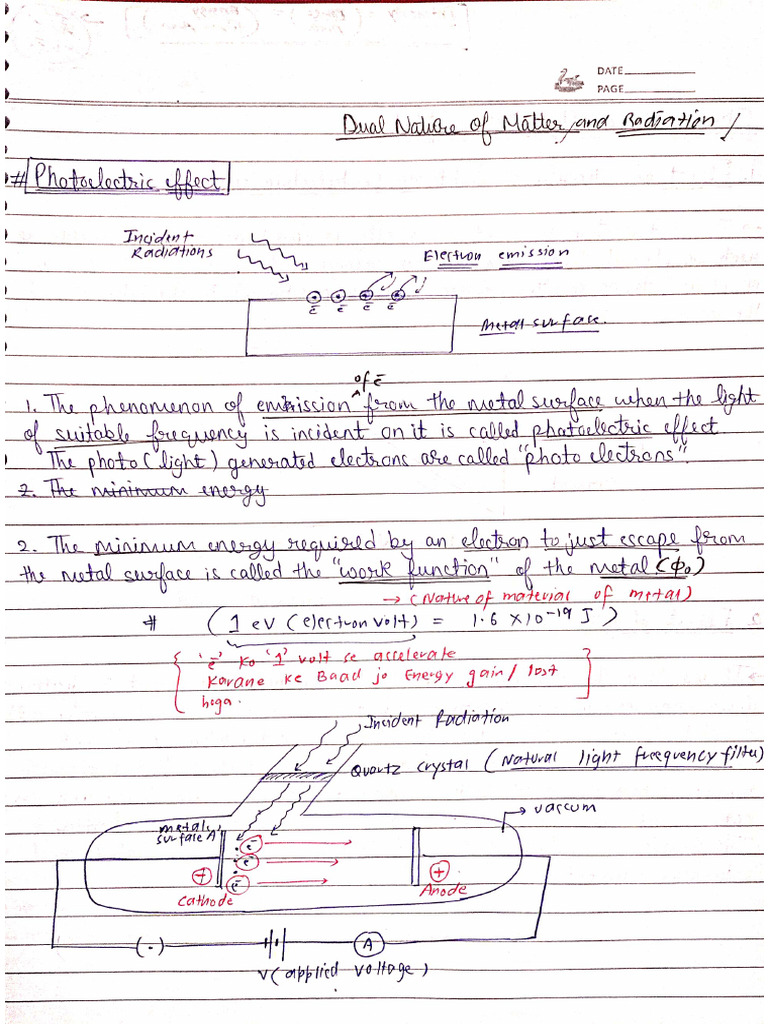 DATE
PAGE
Dual Nature of Matter and Radiation
# Photoelectric effect
Incident
Radiations
Electron emission
ē ē ē ē
Metal surface.
of ē
1. The phenomenon of emission from the metal surface when the light
of suitable frequency is incident on it is called photoelectric effect
The photo (light) generated electrons are called "photo electrons".
2. The minimum energy
2. The minimum energy required by an electron to just escape from
the metal surface is called the "work function" of the metal (Φ₀)
→ (Nature of material of metal)
# (1 eV (electron volt) = 1.6 × 10⁻¹⁹ J)
'ē' ko '1' volt se accelerate
karane ke Baad jo Energy gain / lost
hoga.
Incident Radiation
Quartz crystal (Natural light freequency filter)
vaccum
metal
surface A
e⁻
e⁻
e⁻
+
+
Cathode
Anode
(-)
A
V (applied voltage)